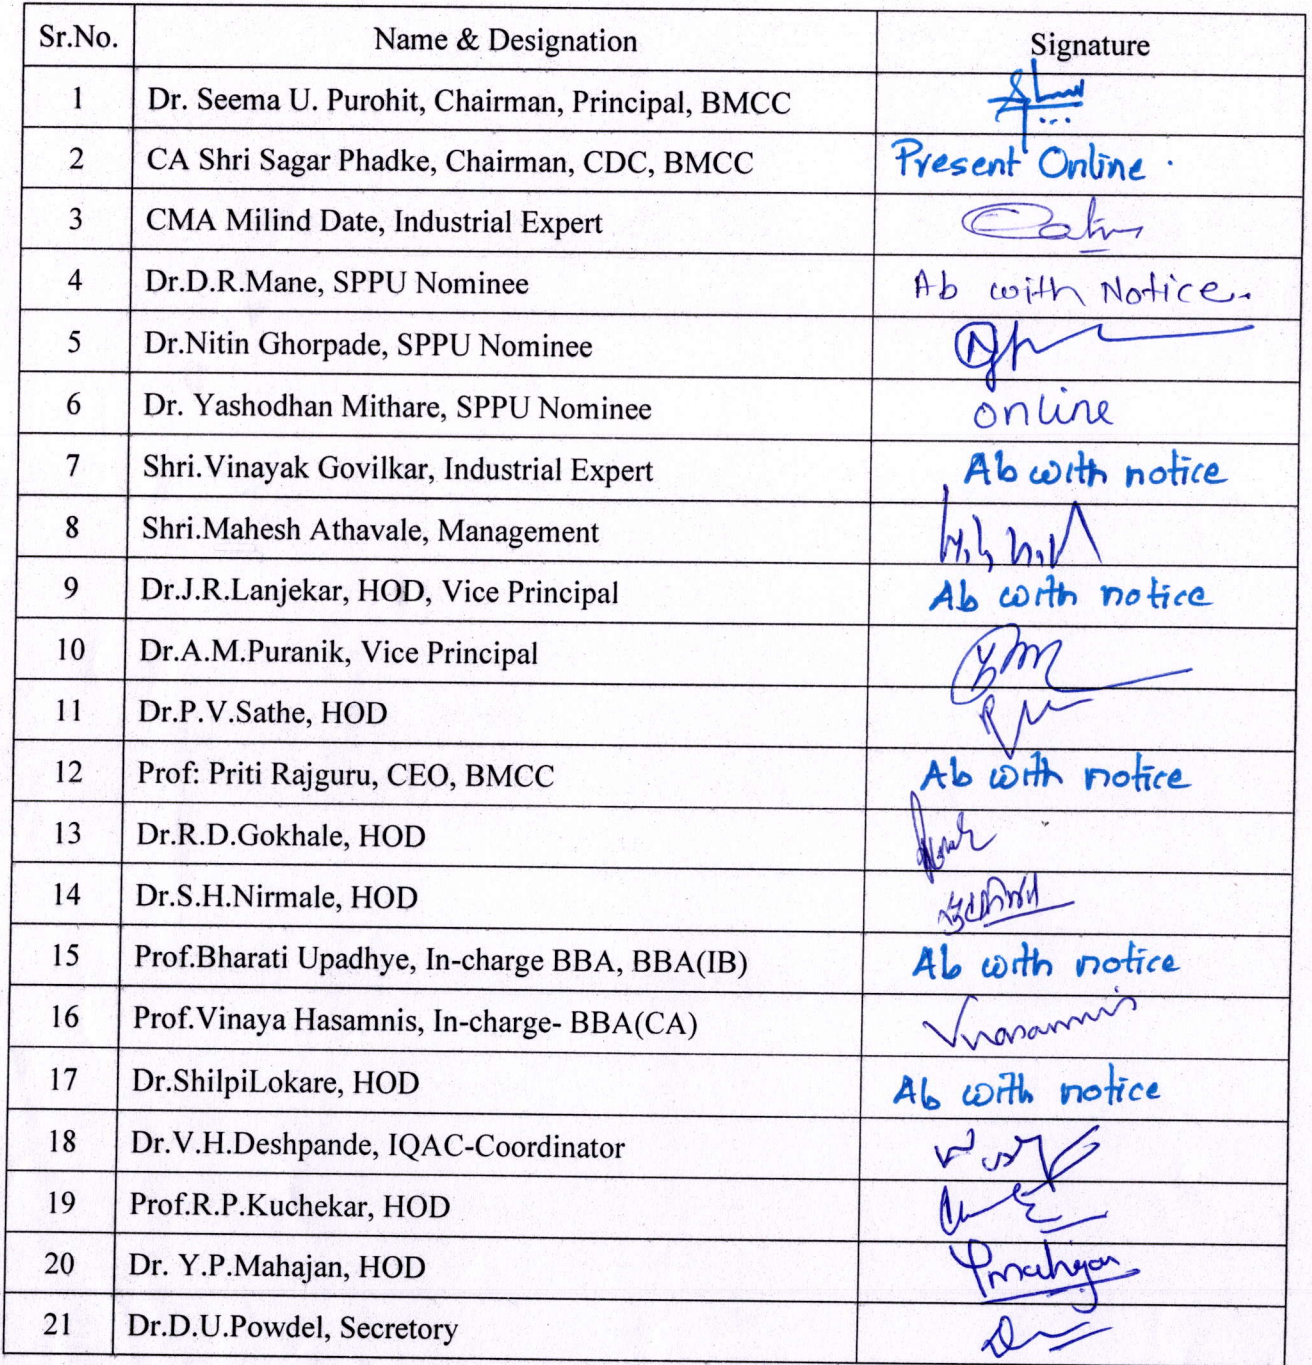 Sr.No. Name & Designation Signature
1 Dr. Seema U. Purohit, Chairman, Principal, BMCC
2 CA Shri Sagar Phadke, Chairman, CDC, BMCC Present Online .
3 CMA Milind Date, Industrial Expert
4 Dr.D.R.Mane, SPPU Nominee Ab with Notice.
5 Dr.Nitin Ghorpade, SPPU Nominee
6 Dr. Yashodhan Mithare, SPPU Nominee online
7 Shri.Vinayak Govilkar, Industrial Expert Ab with notice
8 Shri.Mahesh Athavale, Management
9 Dr.J.R.Lanjekar, HOD, Vice Principal Ab with notice
10 Dr.A.M.Puranik, Vice Principal
11 Dr.P.V.Sathe, HOD
12 Prof: Priti Rajguru, CEO, BMCC Ab with notice
13 Dr.R.D.Gokhale, HOD
14 Dr.S.H.Nirmale, HOD
15 Prof.Bharati Upadhye, In-charge BBA, BBA(IB) Ab with notice
16 Prof.Vinaya Hasamnis, In-charge- BBA(CA) Vhasamnis
17 Dr.ShilpiLokare, HOD Ab with notice
18 Dr.V.H.Deshpande, IQAC-Coordinator
19 Prof.R.P.Kuchekar, HOD
20 Dr. Y.P.Mahajan, HOD Ymahajan
21 Dr.D.U.Powdel, Secretory